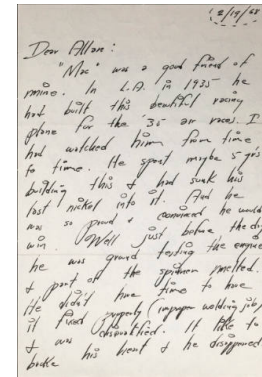 12/19/68
Dear Allan:
"Mac" was a good friend of
mine. In L.A. in 1935 he
had built this beautiful racing
plane for the '35 air races. I
had watched him from time
to time. He spent maybe 5 yrs
building this & had sunk his
last nickel into it. And he
was so proud & convinced he would
win. Well just before the day
he was ground testing the engine
& part of the melted.
He didn't have time to have
it fixed properly (improper welding job)
& was disqualified. It like to
broke his heart & he disappeared